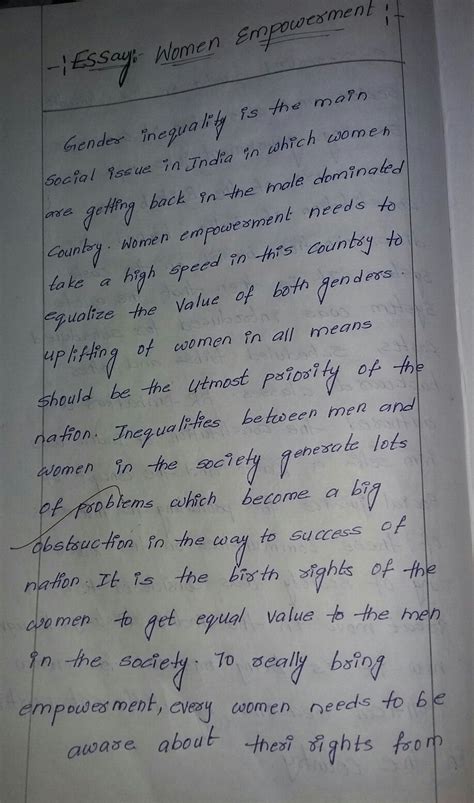 -:Essay:- Women Empowerment:-
Gender inequality is the main
social issue in India in which women
are getting back in the male dominated
country. Women empowerment needs to
take a high speed in this country to
equalize the value of both genders.
uplifting of women in all means
should be the utmost priority of the
nation. Inequalities between men and
women in the society generate lots
of problems which become a big
obstruction in the way to success of
nation. It is the birth rights of the
women to get equal value to the men
in the society. To really bring
empowerment, every women needs to be
aware about theri rights from